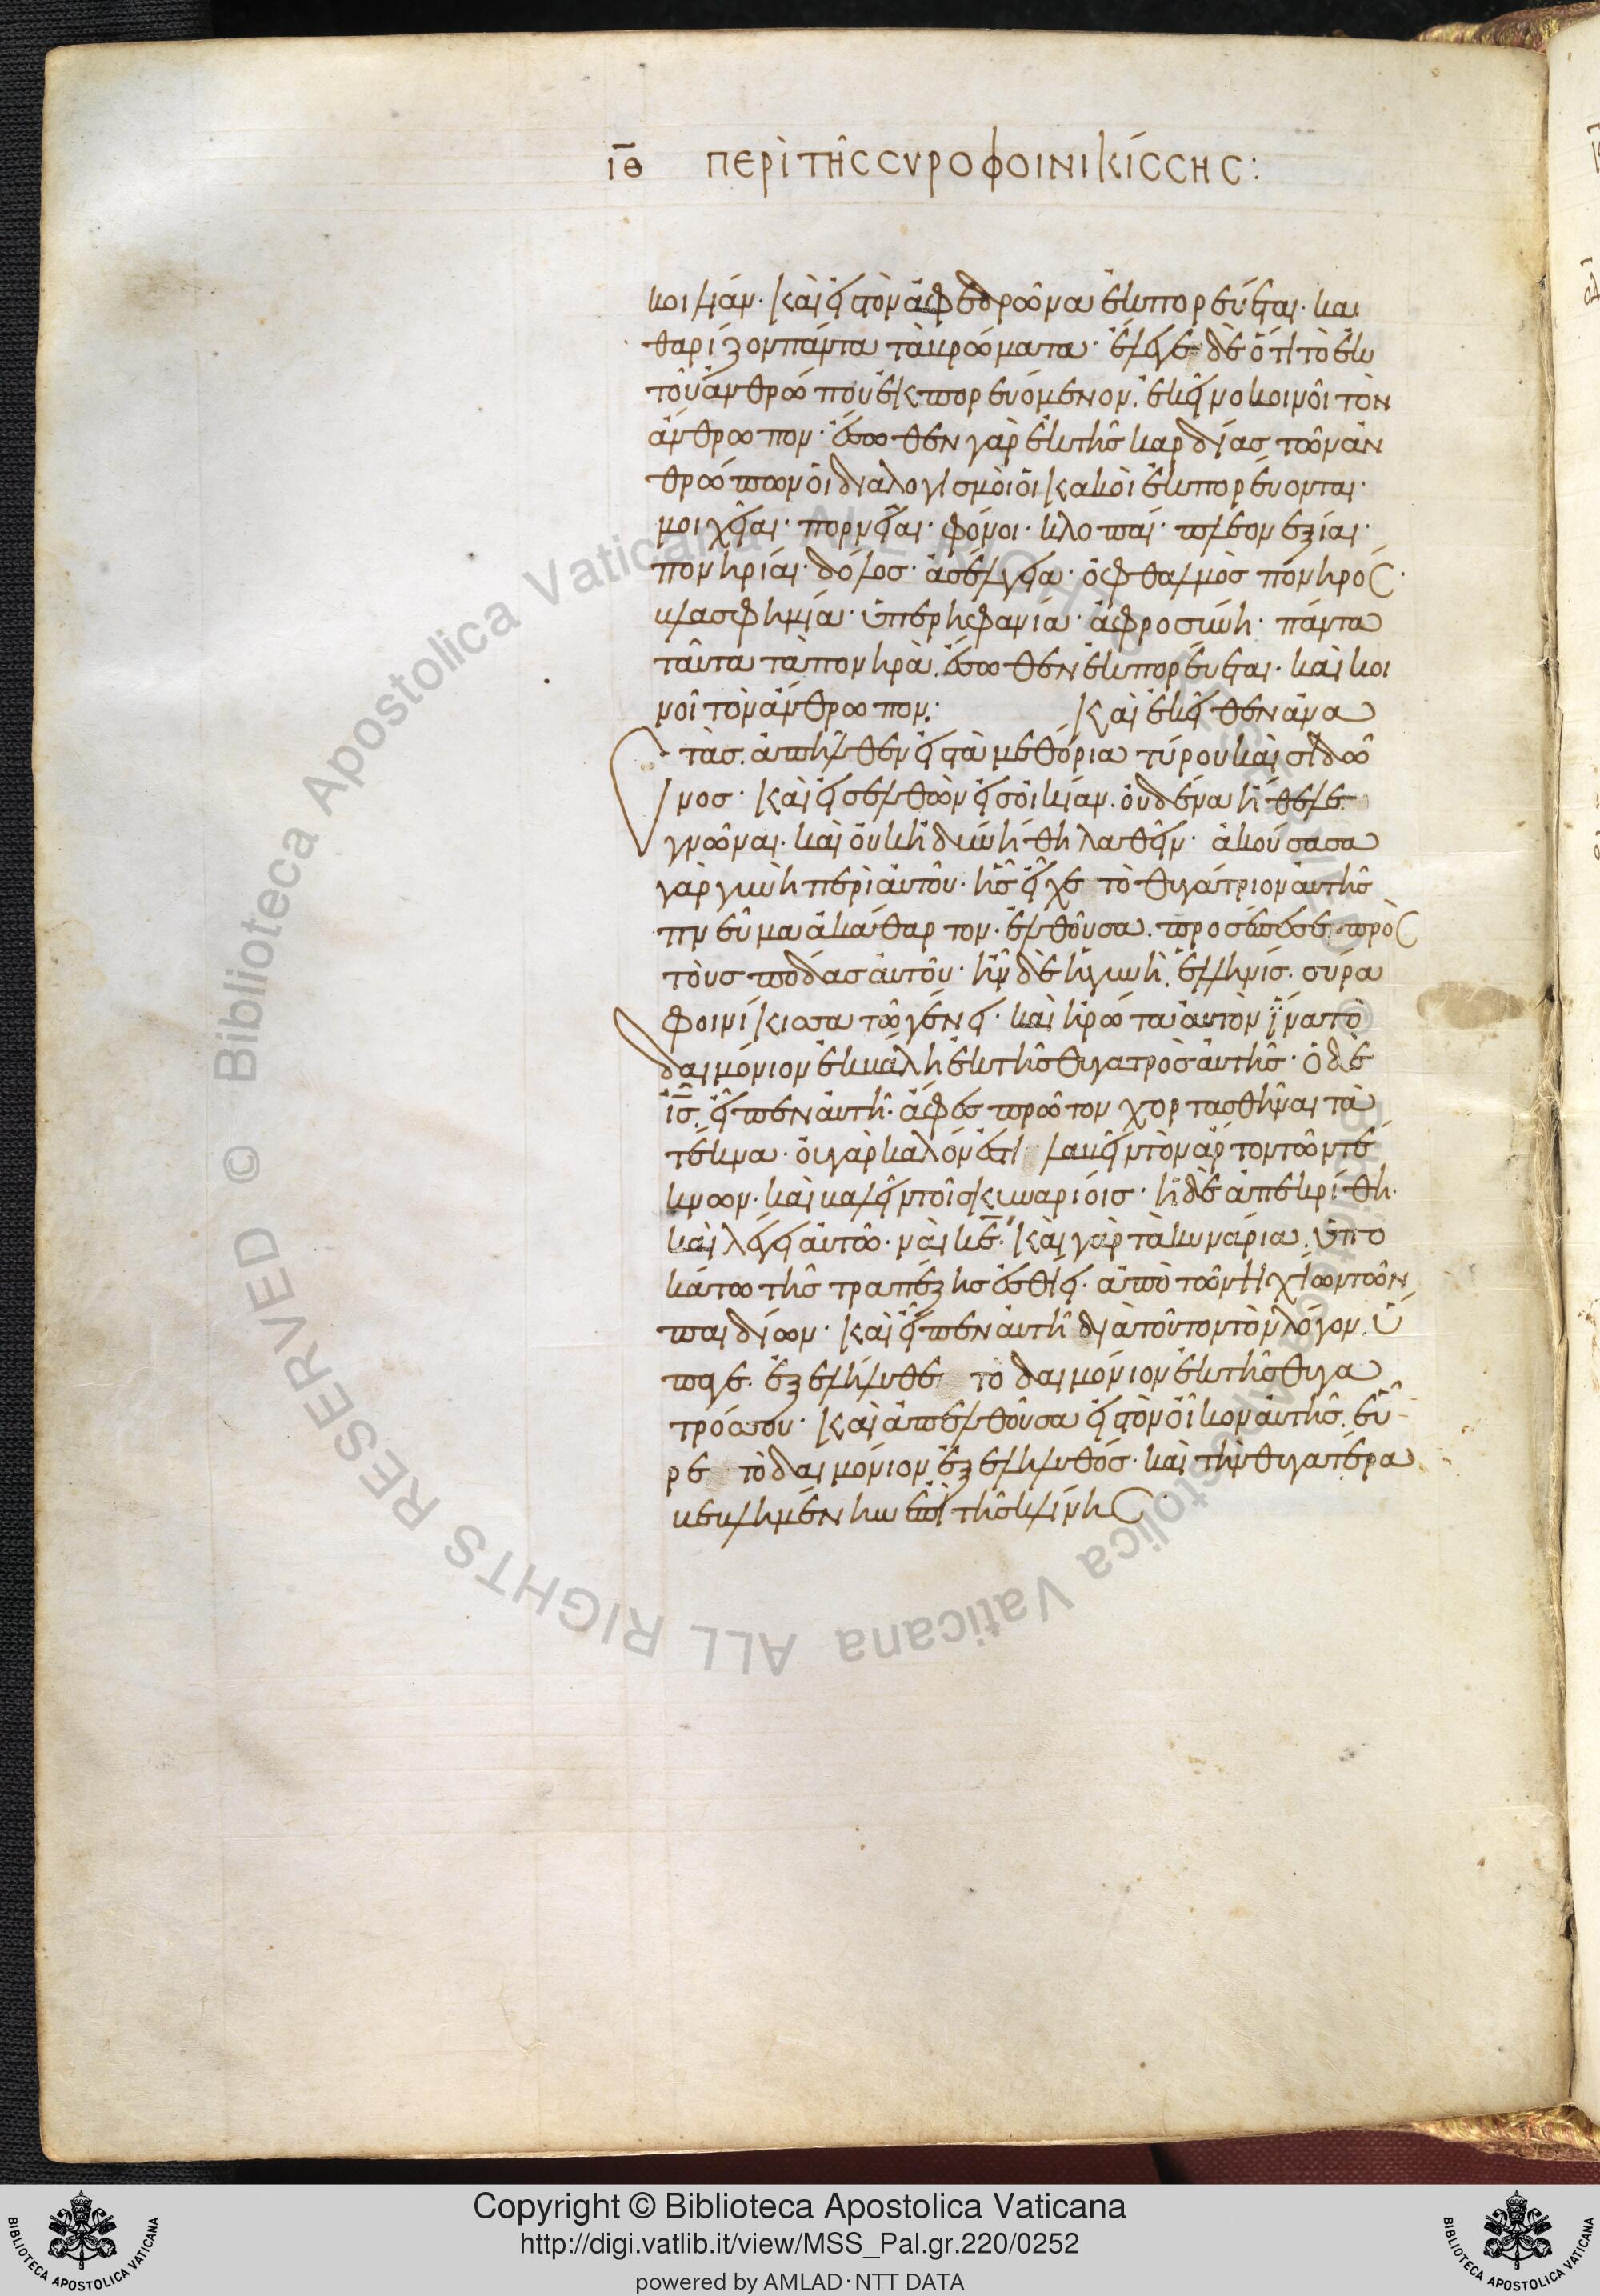 ιθ ΠΕΡὶ ΤῆC CΥΡΟΦΟΙΝΙΚίCCΗC:
κοιλίαν· καὶ εἰς τὸν ἀφεδρῶνα ἐκπορεύεται· κα
θαρίζον πάντα τὰ βρώματα· ἔλεγε δὲ ὅτι τὸ ἐκ
τοῦ ἀνθρώπου ἐκπορευόμενον. ἐκεῖνο κοινοῖ τὸν
ἄνθρωπον· ἔσωθεν γὰρ ἐκ τῆς καρδίας τῶν ἀν
θρώπων οἱ διαλογισμοὶ οἱ κακοὶ ἐκπορεύονται·
μοιχεῖαι· πορνεῖαι· φόνοι· κλοπαί· πλεονεξίαι·
πονηρίαι· δόλος· ἀσέλγεια· ὀφθαλμὸς πονηρός·
βλασφημία· ὑπερηφανία· ἀφροσύνη· πάντα
ταῦτα τὰ πονηρὰ. ἔσωθεν ἐκπορεύεται· καὶ κοι
νοῖ τὸν ἄνθρωπον: Καὶ ἐκεῖθεν ἀνα
στὰς. ἀπῆλθεν εἰς τὰ μεθόρια τύρου καὶ σιδῶ
νος· καὶ εἰσελθὼν εἰς οἰκίαν. οὐδένα ἤθελε
γνῶναι. καὶ οὐκ ἠδυνήθη λαθεῖν· ἀκούσασα
γὰρ γυνὴ περὶ αὐτοῦ· ἧς εἶχε τὸ θυγάτριον αὐτῆς
πνεῦμα ἀκάθαρτον· ἐλθοῦσα. προσέπεσε πρὸς
τοὺς πόδας αὐτοῦ· ἦν δὲ ἡ γυνὴ. ἑλληνίς. σύρα
φοινίκισσα τῷ γένει· καὶ ἠρώτα αὐτὸν ἵνα τὸ
δαιμόνιον ἐκβάλῃ ἐκ τῆς θυγατρὸς αὐτῆς· ὁ δὲ
ις. εἶπεν αὐτῇ· ἄφες πρῶτον χορτασθῆναι τὰ
τέκνα· οὐ γὰρ καλόν ἐστι λαβεῖν τὸν ἄρτον τῶν τέ
κνων. καὶ βαλεῖν τοῖς κυναρίοις· ἡ δὲ ἀπεκρίθη.
καὶ λέγει αὐτῷ· ναὶ κε· καὶ γὰρ τὰ κυνάρια. ὑπο
κάτω τῆς τραπέζης ἐσθίει· ἀπὸ τῶν ψιχίων τῶν
παιδίων· καὶ εἶπεν αὐτῇ διὰ τοῦτον τὸν λόγον. ὕ
παγε. ἐξελήλυθε τὸ δαιμόνιον ἐκ τῆς θυγα
τρός σου· καὶ ἀπελθοῦσα εἰς τὸν οἶκον αὐτῆς. εὗ
ρε τὸ δαιμόνιον ἐξεληλυθός· καὶ τὴν θυγατέρα
βεβλημένην ἐπὶ τῆς κλίνης
© Biblioteca Apostolica Vaticana ALL RIGHTS RESERVED © Biblioteca Apostolica Vaticana ALL RIGHTS RESERVED
BIBLIOTECA APOSTOLICA VATICANA
Copyright © Biblioteca Apostolica Vaticana
http://digi.vatlib.it/view/MSS_Pal.gr.220/0252
powered by AMLAD·NTT DATA
BIBLIOTECA APOSTOLICA VATICANA